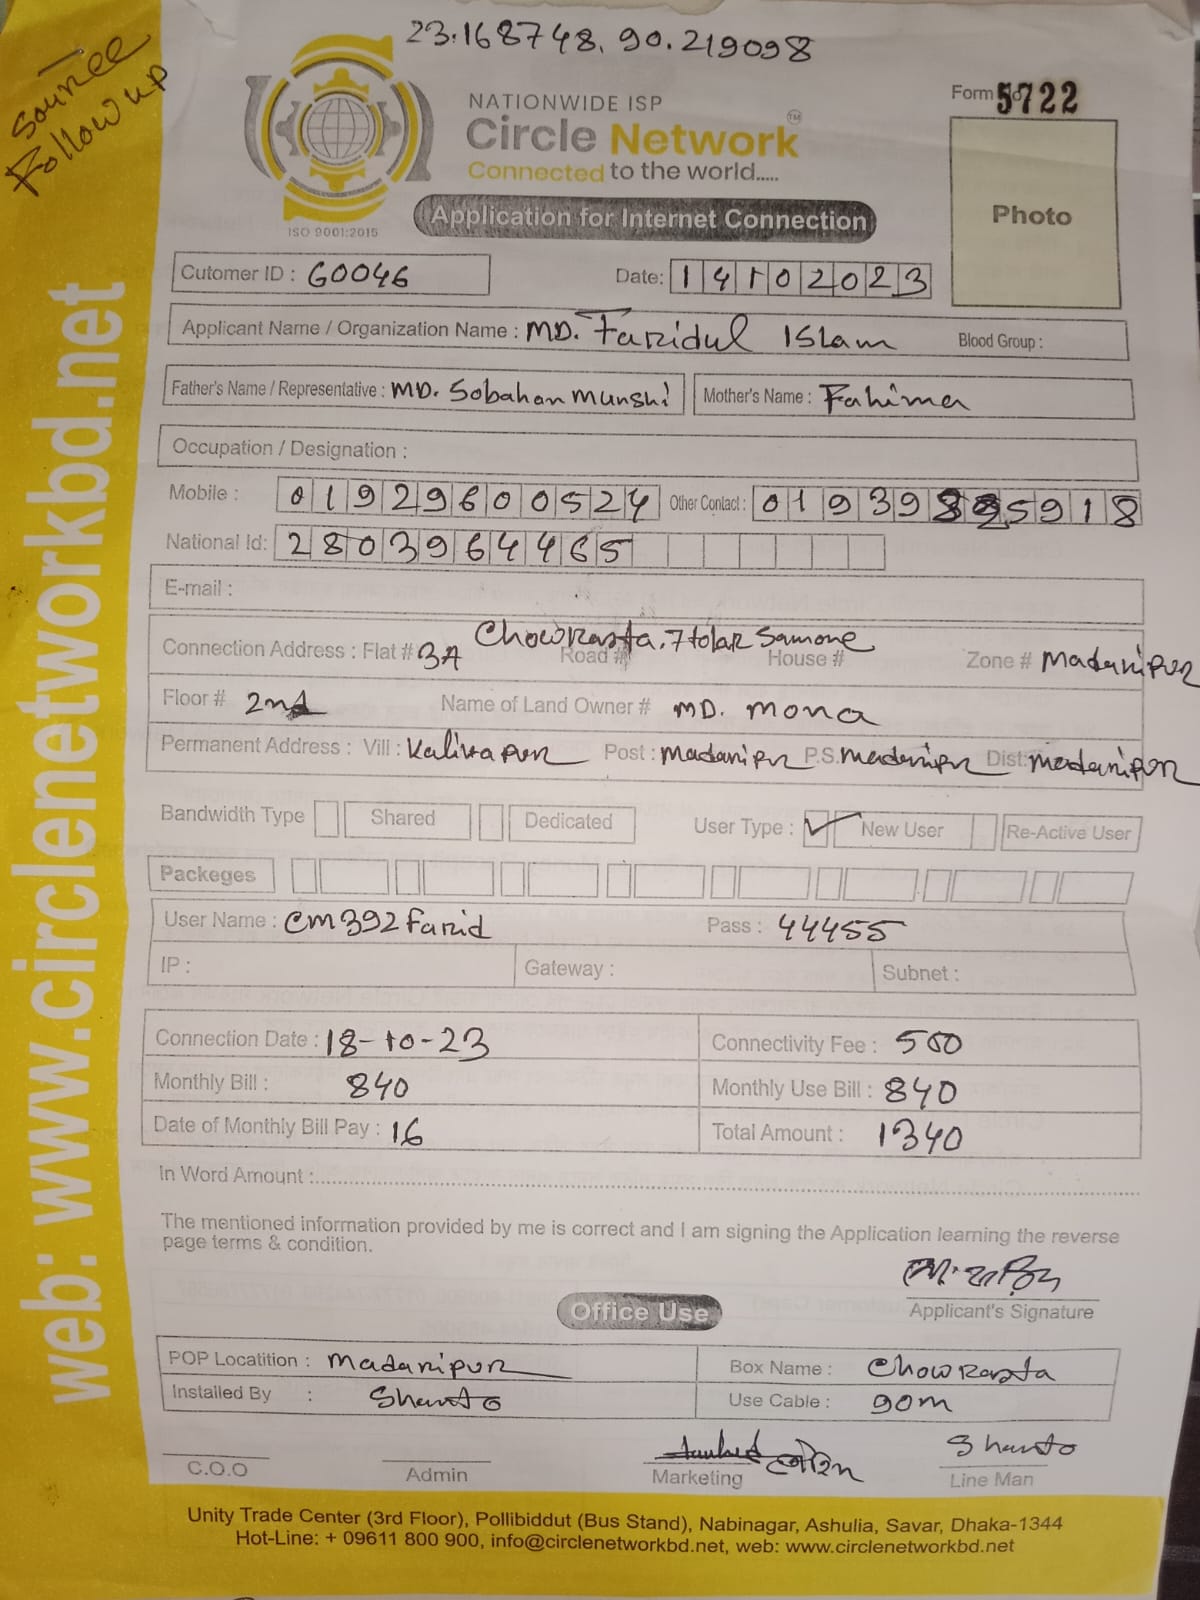 23.168748, 90.219098
Sournee
Follow up
NATIONWIDE ISP
Form 5722
Circle Network TM
Connected to the world.....
ISO 9001:2015
Application for Internet Connection
Photo
Cutomer ID : G0046 Date: 14102023
Applicant Name / Organization Name : MD. Faridul Islam Blood Group :
Father's Name / Representative : MD. Sobahan Munshi Mother's Name : Fahima
Occupation / Designation :
Mobile : 01929600524 Other Contact : 01939 5918
National Id: 2803964465
E-mail :
Chowrasta. 7 tolar Samone
Connection Address : Flat # 3A Road # House # Zone # Madaripur
Floor # 2nd Name of Land Owner # MD. Mona
Permanent Address : Vill : Kalikapur Post : Madaripur P.S. Madaripur Dist: Madaripur
Bandwidth Type Shared Dedicated User Type : New User Re-Active User
Packeges
User Name : cm392farid Pass : 44455
IP : Gateway : Subnet :
Connection Date : 18-10-23 Connectivity Fee : 500
Monthly Bill : 840 Monthly Use Bill : 840
Date of Monthly Bill Pay : 16 Total Amount : 1340
In Word Amount :
The mentioned information provided by me is correct and I am signing the Application learning the reverse
page terms & condition.
Applicant's Signature
Office Use
POP Locatition : Madaripur Box Name : Chowrasta
Installed By : Shanto Use Cable : 90m
Shanto
C.O.O Admin Marketing Line Man
Unity Trade Center (3rd Floor), Pollibiddut (Bus Stand), Nabinagar, Ashulia, Savar, Dhaka-1344
Hot-Line: + 09611 800 900, info@circlenetworkbd.net, web: www.circlenetworkbd.net
web: www.circlenetworkbd.net